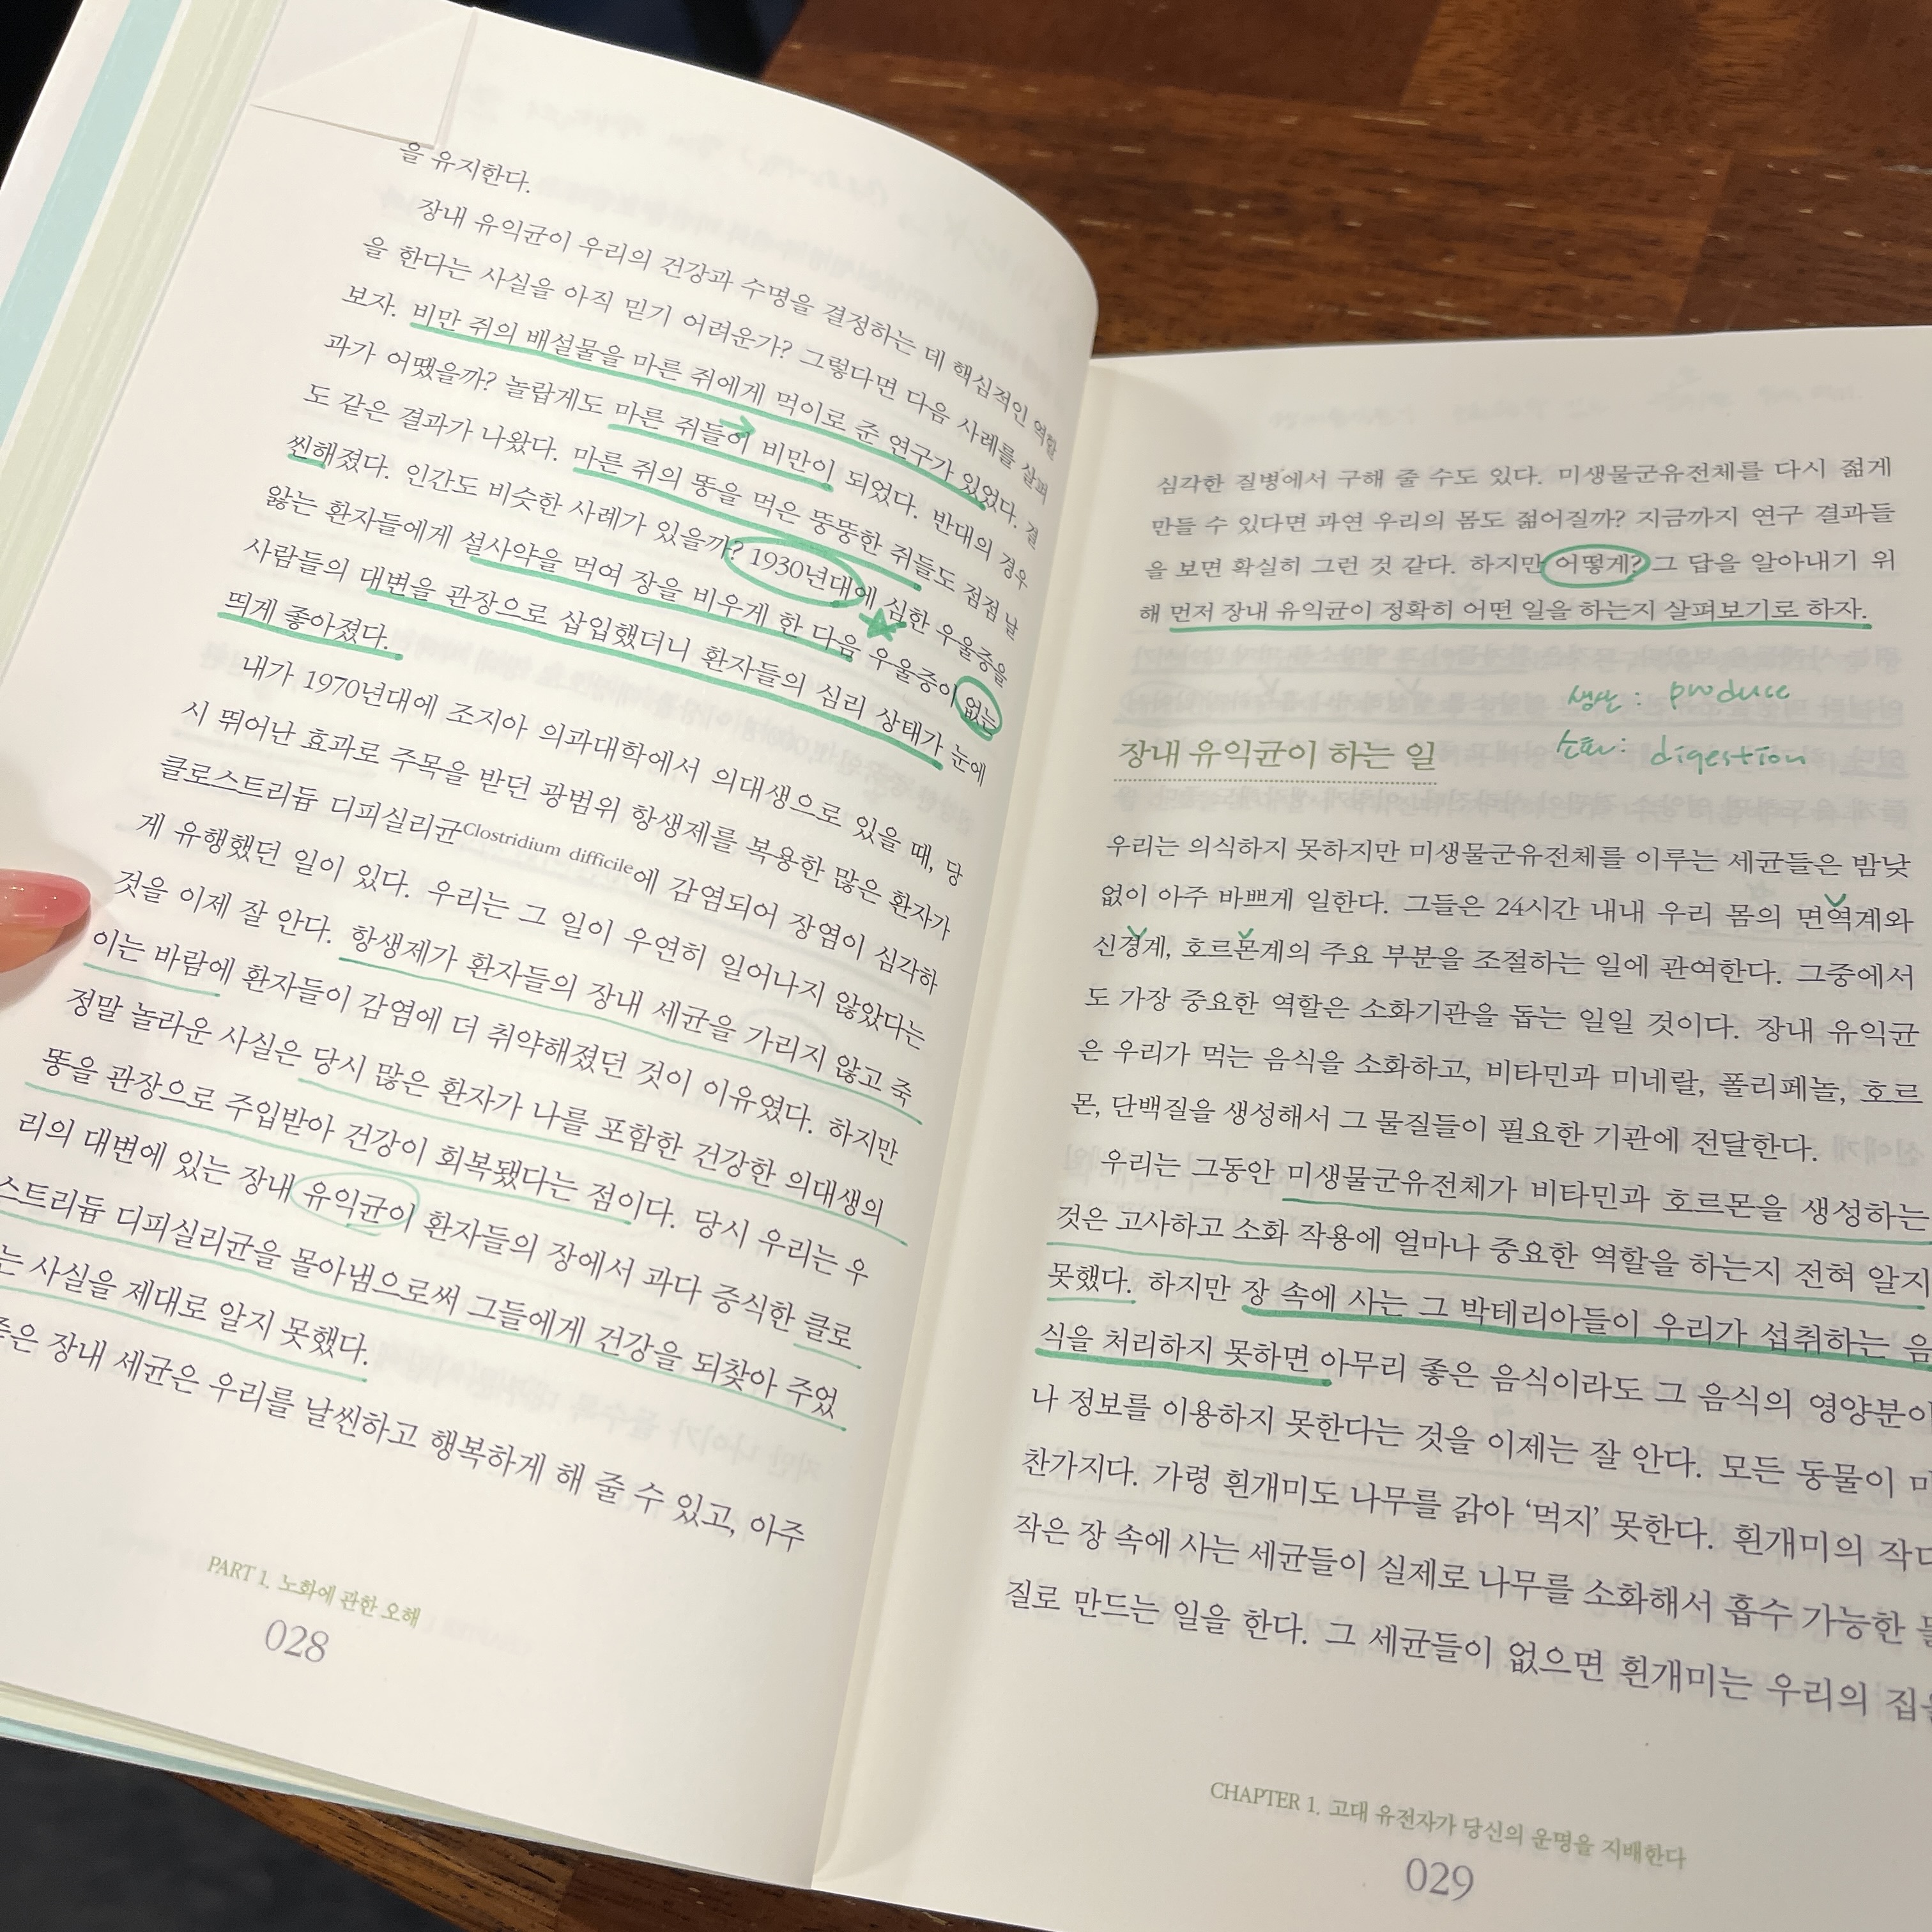 을 유지한다.
장내 유익균이 우리의 건강과 수명을 결정하는 데 핵심적인 역할
을 한다는 사실을 아직 믿기 어려운가? 그렇다면 다음 사례를 살펴
보자. 비만 쥐의 배설물을 마른 쥐에게 먹이로 준 연구가 있었다. 결
과가 어땠을까? 놀랍게도 마른 쥐들이 비만이 되었다. 반대의 경우
도 같은 결과가 나왔다. 마른 쥐의 똥을 먹은 뚱뚱한 쥐들도 점점 날
씬해졌다. 인간도 비슷한 사례가 있을까? 1930년대에 심한 우울증을
앓는 환자들에게 설사약을 먹여 장을 비우게 한 다음 우울증이 없는
사람들의 대변을 관장으로 삽입했더니 환자들의 심리 상태가 눈에
띄게 좋아졌다.
내가 1970년대에 조지아 의과대학에서 의대생으로 있을 때, 당
시 뛰어난 효과로 주목을 받던 광범위 항생제를 복용한 많은 환자가
클로스트리듐 디피실리균Clostridium difficile에 감염되어 장염이 심각하
게 유행했던 일이 있다. 우리는 그 일이 우연히 일어나지 않았다는
것을 이제 잘 안다. 항생제가 환자들의 장내 세균을 가리지 않고 죽
이는 바람에 환자들이 감염에 더 취약해졌던 것이 이유였다. 하지만
정말 놀라운 사실은 당시 많은 환자가 나를 포함한 건강한 의대생의
똥을 관장으로 주입받아 건강이 회복됐다는 점이다. 당시 우리는 우
리의 대변에 있는 장내 유익균이 환자들의 장에서 과다 증식한 클로
스트리듐 디피실리균을 몰아냄으로써 그들에게 건강을 되찾아 주었
는 사실을 제대로 알지 못했다.
장내 세균은 우리를 날씬하고 행복하게 해 줄 수 있고, 아주
PART 1. 노화에 관한 오해
028
심각한 질병에서 구해 줄 수도 있다. 미생물군유전체를 다시 젊게
만들 수 있다면 과연 우리의 몸도 젊어질까? 지금까지 연구 결과들
을 보면 확실히 그런 것 같다. 하지만 어떻게? 그 답을 알아내기 위
해 먼저 장내 유익균이 정확히 어떤 일을 하는지 살펴보기로 하자.
생산 : produce
digestion
장내 유익균이 하는 일
우리는 의식하지 못하지만 미생물군유전체를 이루는 세균들은 밤낮
없이 아주 바쁘게 일한다. 그들은 24시간 내내 우리 몸의 면역계와
신경계, 호르몬계의 주요 부분을 조절하는 일에 관여한다. 그중에서
도 가장 중요한 역할은 소화기관을 돕는 일일 것이다. 장내 유익균
은 우리가 먹는 음식을 소화하고, 비타민과 미네랄, 폴리페놀, 호르
몬, 단백질을 생성해서 그 물질들이 필요한 기관에 전달한다.
우리는 그동안 미생물군유전체가 비타민과 호르몬을 생성하는
것은 고사하고 소화 작용에 얼마나 중요한 역할을 하는지 전혀 알지
못했다. 하지만 장 속에 사는 그 박테리아들이 우리가 섭취하는 음
식을 처리하지 못하면 아무리 좋은 음식이라도 그 음식의 영양분이
나 정보를 이용하지 못한다는 것을 이제는 잘 안다. 모든 동물이
찬가지다. 가령 흰개미도 나무를 갉아 ‘먹지’ 못한다. 흰개미의 작디
작은 장 속에 사는 세균들이 실제로 나무를 소화해서 흡수 가능한
질로 만드는 일을 한다. 그 세균들이 없으면 흰개미는 우리의 집을
CHAPTER 1. 고대 유전자가 당신의 운명을 지배한다
029